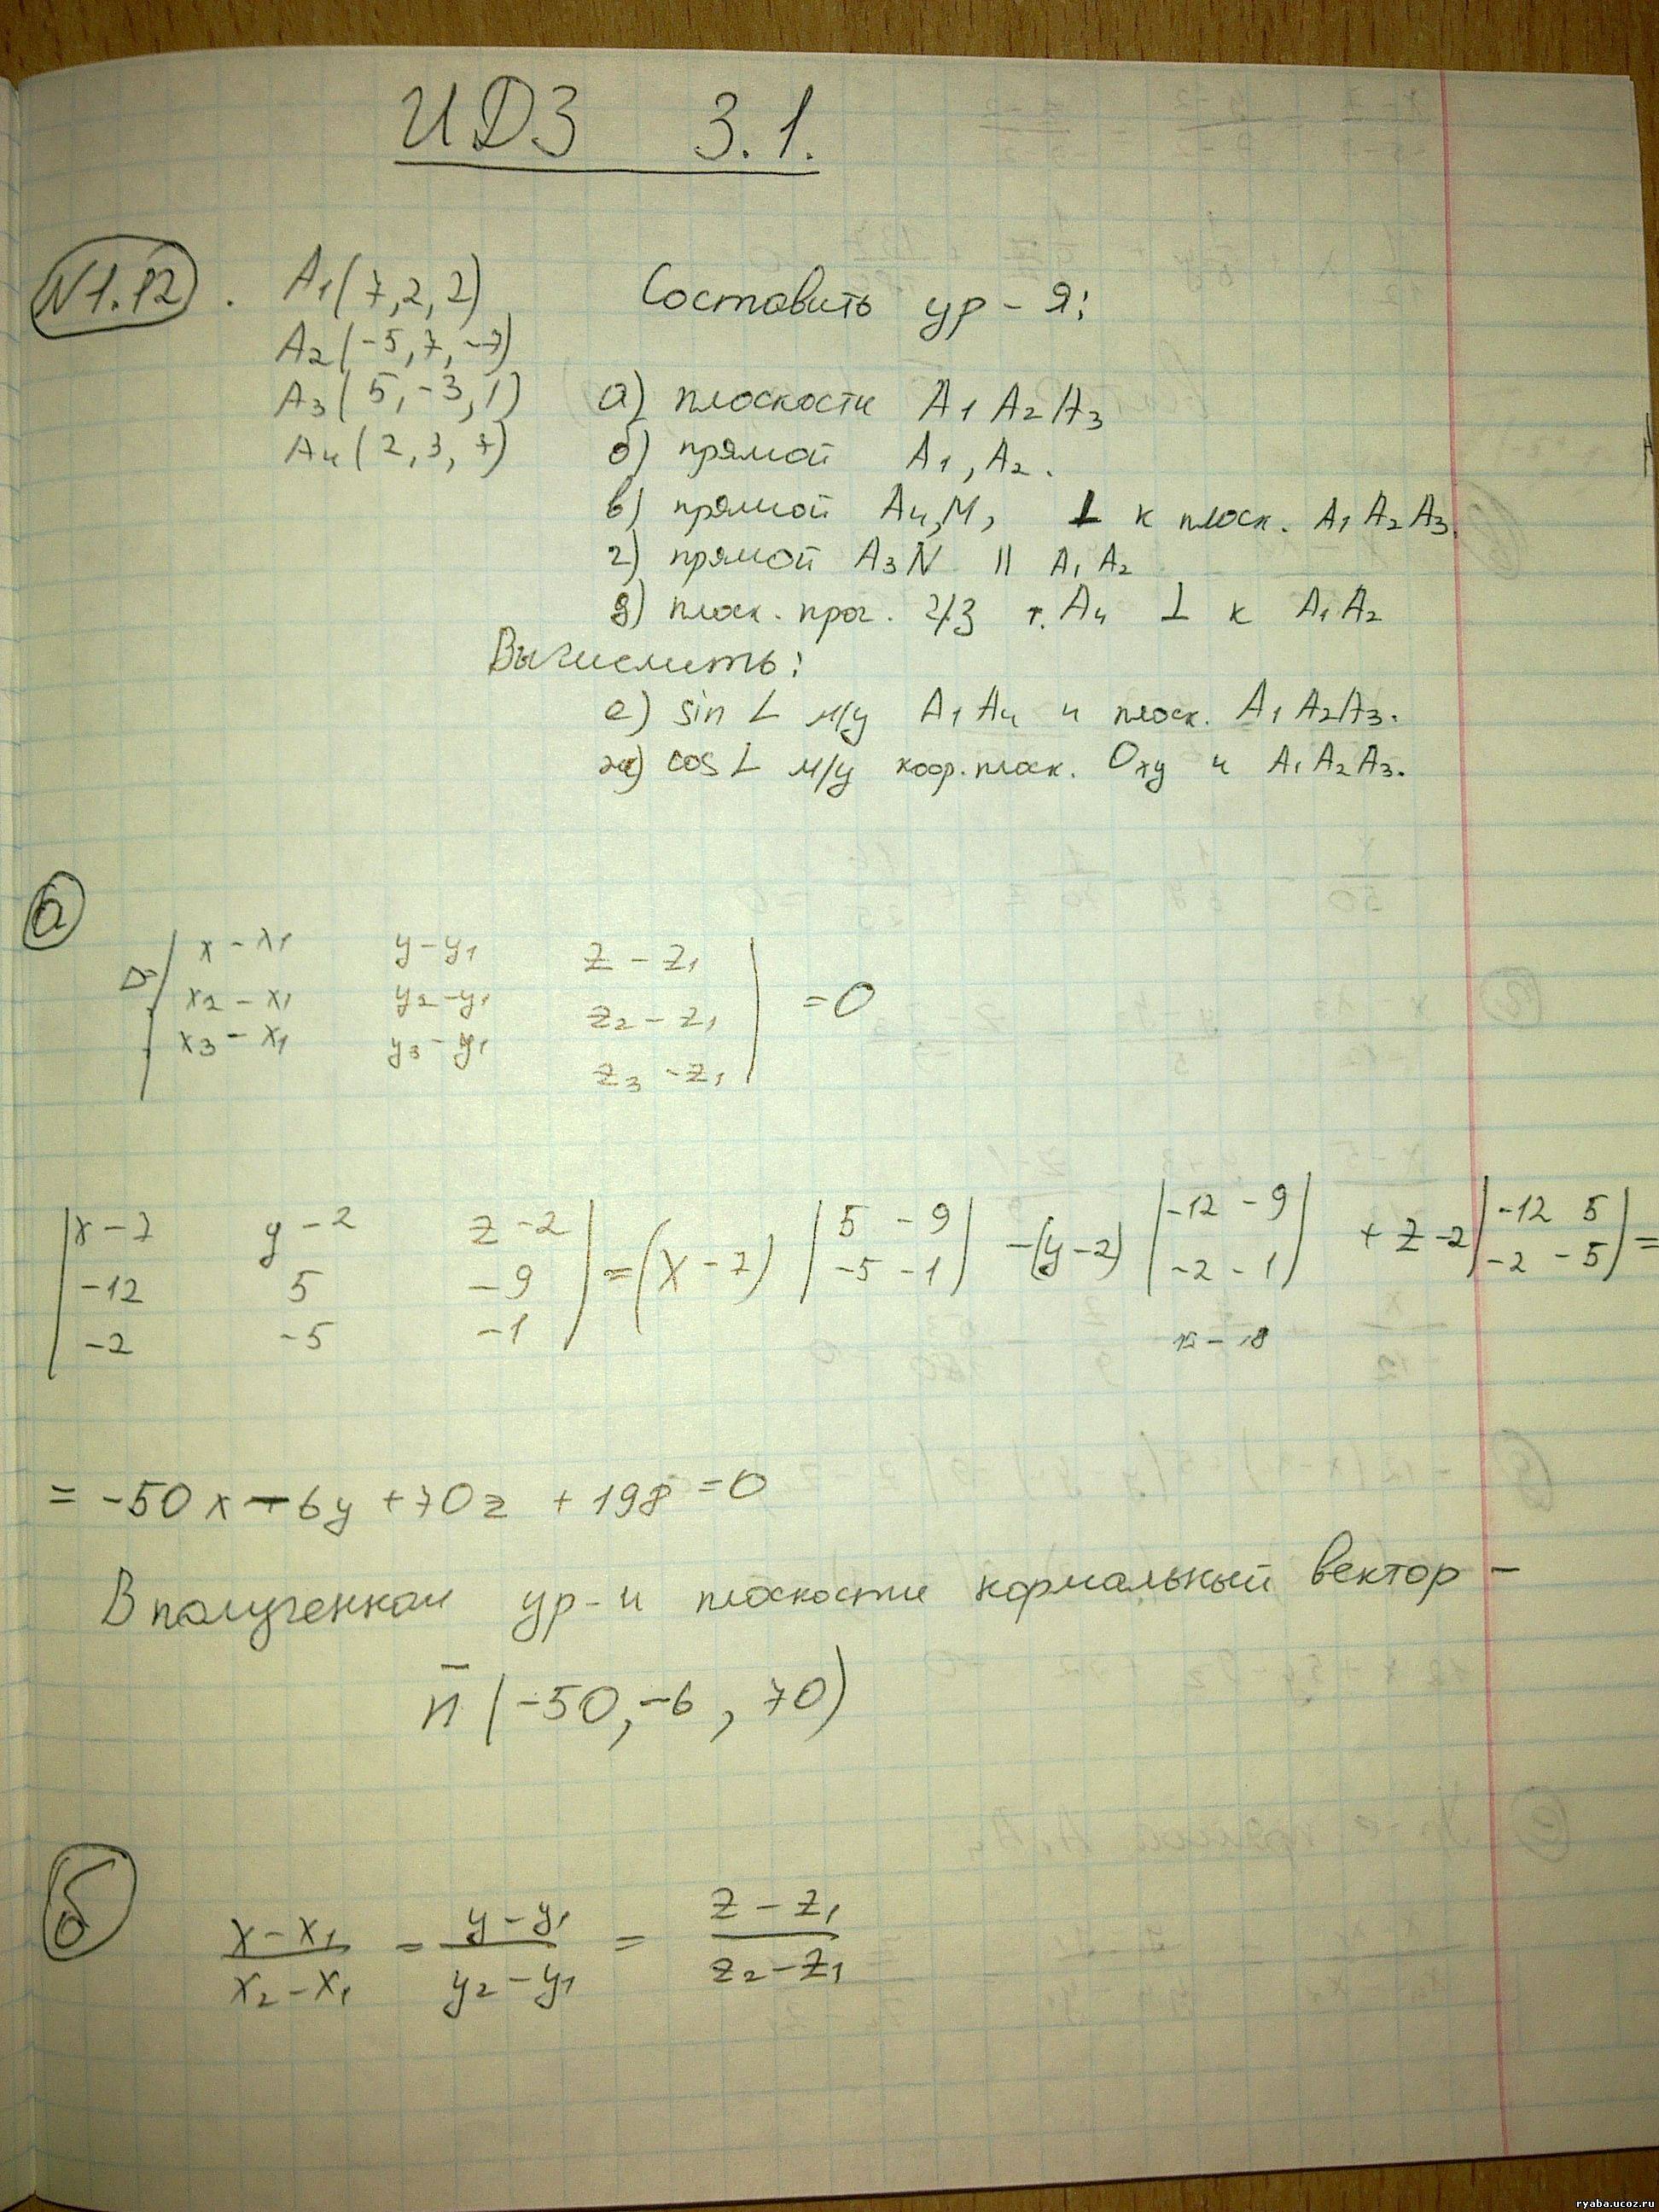 ИДЗ 3.1.
N1.12. A₁(7,2,2) Составить ур-я:
A₂(-5,7,-7)
A₃(5,-3,1) а) плоскости A₁A₂A₃
A₄(2,3,7) б) прямой A₁,A₂.
в) прямой A₄,M, ⊥ к плоск. A₁A₂A₃.
г) прямой A₃N || A₁A₂
д) плоск. прог. ч/з т. A₄ ⊥ к A₁A₂
Вычислить:
е) sin L м/у A₁A₄ и плоск. A₁A₂A₃.
ж) cos L м/у коор. плоск. Oxy и A₁A₂A₃.
а
Δ= | x-x₁ y-y₁ z-z₁ |
| x₂-x₁ y₂-y₁ z₂-z₁ | =0
| x₃-x₁ y₃-y₁ z₃-z₁ |
| x-7 y-2 z-2 | =(x-7) | 5 -9 | -(y-2) | -12 -9 | + z-2 | -12 5 | =
| -12 5 -9 | | -5 -1 | | -2 -1 | | -2 -5 |
| -2 -5 -1 | 12-18
= -50x-6y+70z+198=0
В полученном ур-и плоскости нормальный вектор -
n̄(-50,-6,70)
б
(x-x₁)/(x₂-x₁) = (y-y₁)/(y₂-y₁) = (z-z₁)/(z₂-z₁)
ryaba.ucoz.ru